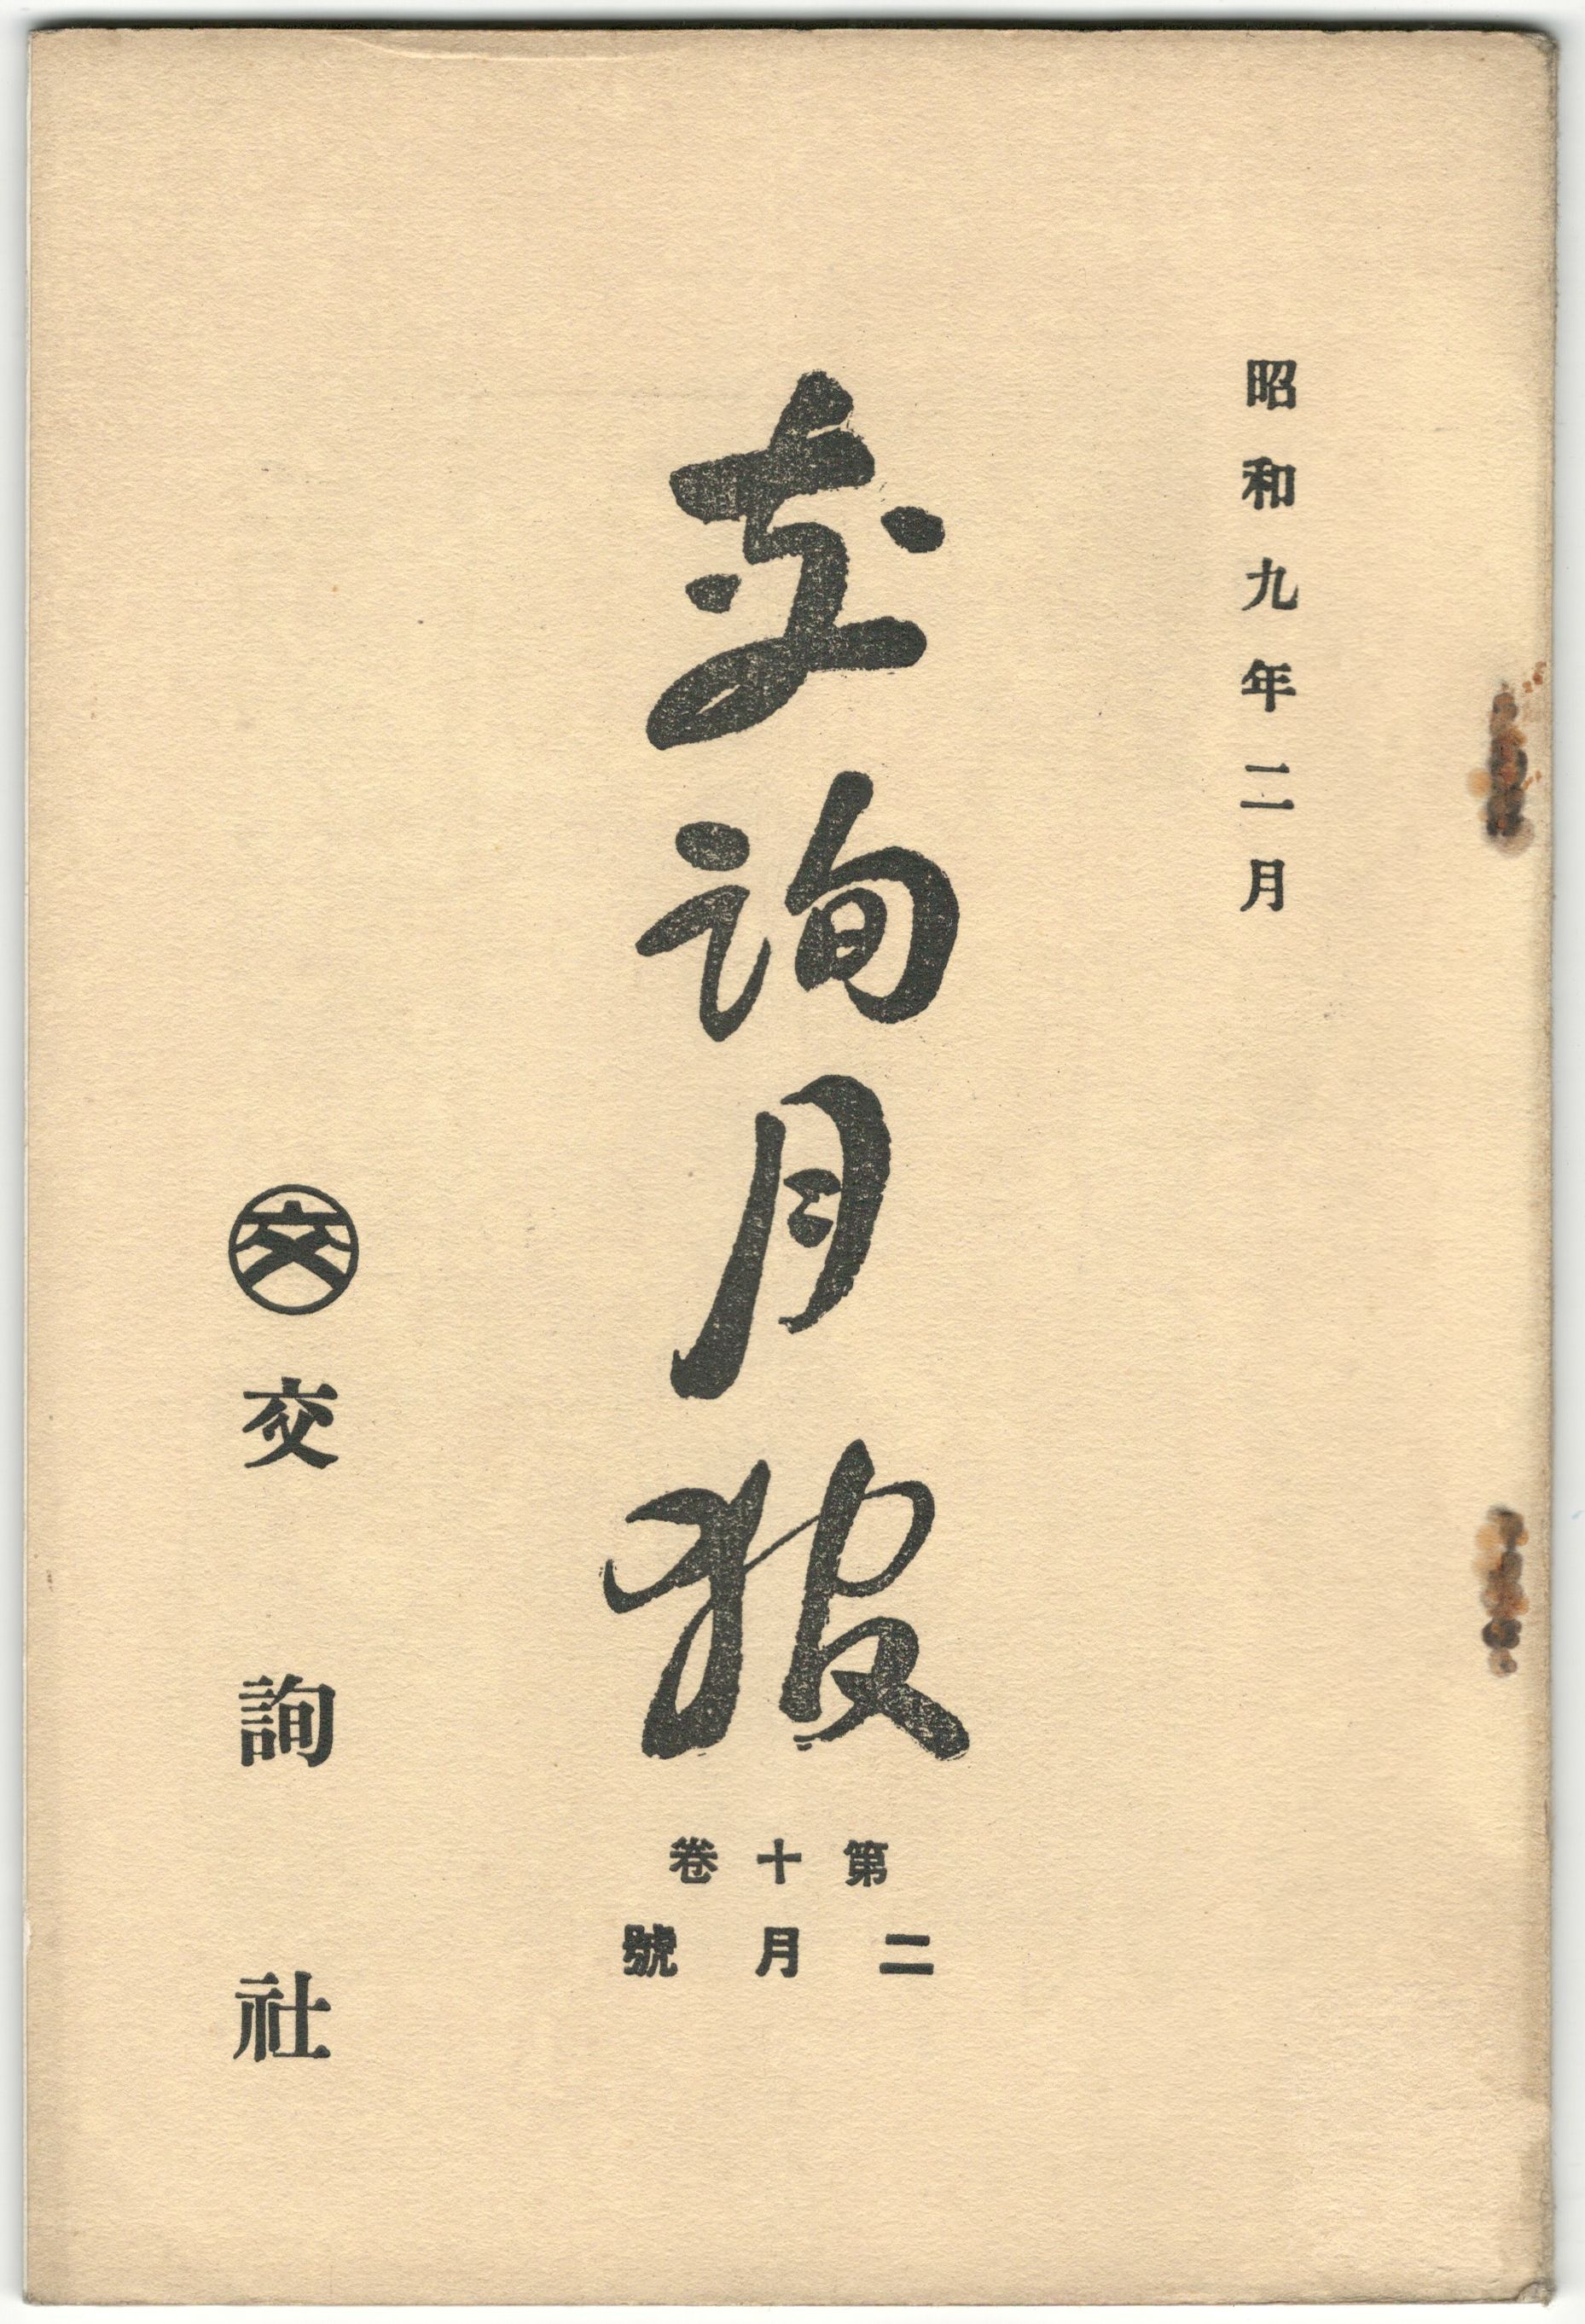 昭和九年二月
交詢月報
第十卷
二月號
交
交詢社